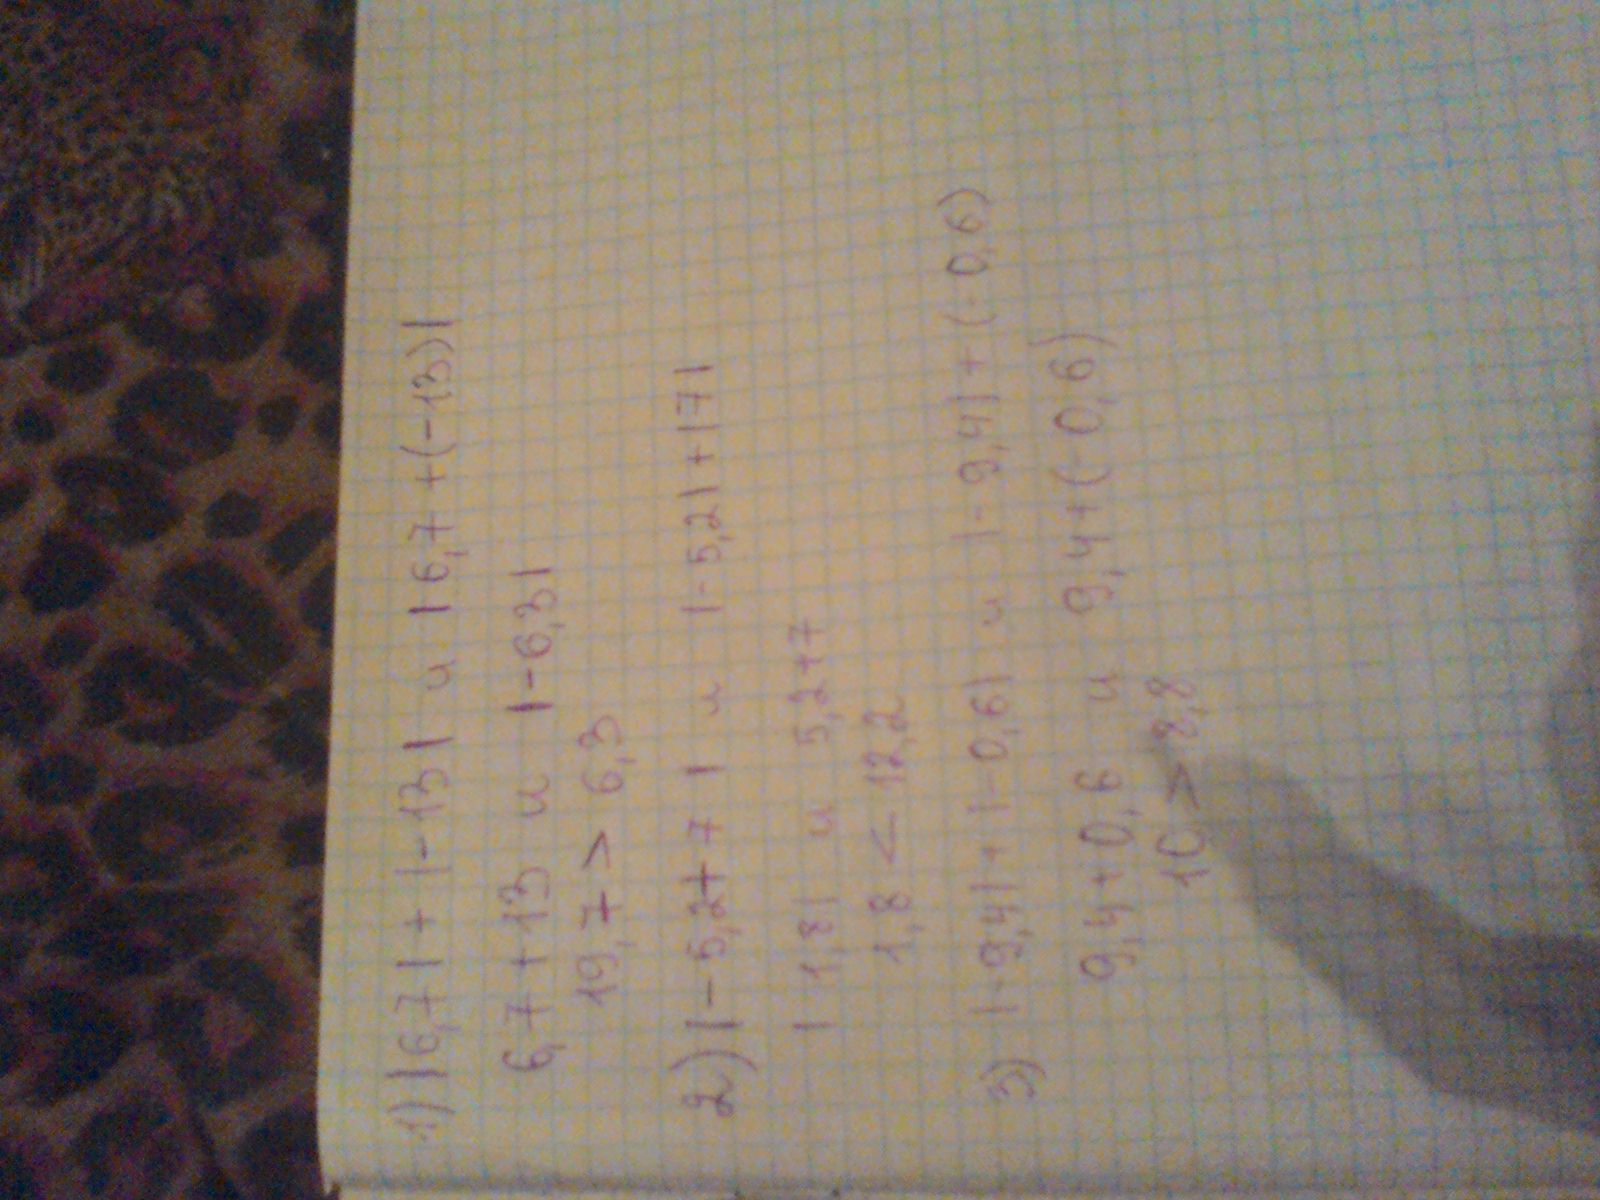 1) |6,7| + |-13| и |6,7 + (-13)|
6,7 + 13 и |-6,3|
19,7 > 6,3
2) |-5,2+7| и |-5,2|+|7|
|1,8| и 5,2+7
1,8 < 12,2
3) |-9,4| + |-0,6| и |-9,4| + (-0,6)
9,4+0,6 и 9,4+(-0,6)
10 > 8,8